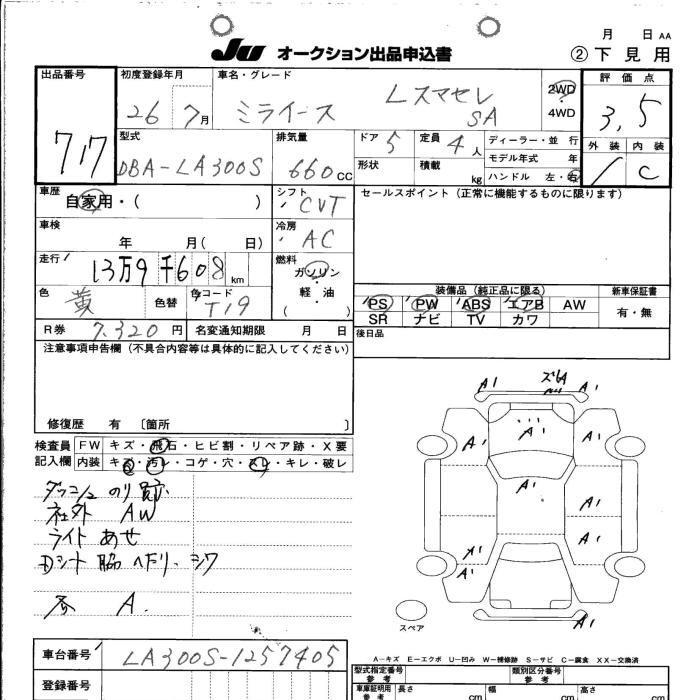 月 日 AA
JU オークション出品申込書 ②下見用
出品番号 717
初度登録年月 26年 7月
車名・グレード ミライース Lスマセレ SA
2WD・4WD
評価点 3.5
外装 内装 C
型式 DBA-LA300S
排気量 660cc
ドア 5
定員 4人
形状
積載 kg
ディーラー・並行
モデル年式 年
ハンドル 左・右
車歴 自家用・( )
シフト CVT
セールスポイント(正常に機能するものに限ります)
車検 年 月( 日)
冷房 AC
走行 13万9千608km
燃料 ガソリン・軽油
( )
色 黄 色替 色コード T19
装備品(純正品に限る)
PS PW ABS エアB AW
SR ナビ TV カワ
新車保証書
有・無
R券 7,320円 名変通知期限 月 日
後日品
注意事項申告欄(不具合内容等は具体的に記入してください)
修復歴 有 〔箇所 〕
検査員記入欄
FW キズ・飛石・ヒビ割・リペア跡・X要
内装 キズ・汚レ・コゲ・穴・スレ・キレ・破レ
ダッシュ のり跡
社外 AW
ライト あせ
Dシート 脇 ヘタリ・シワ
A.
A1 ズレA A1
A1 A1 A1
A1 A1
A1 A1
A1
A1
スペア
A-キズ E-エクボ U-凹み W-補修跡 S-サビ C-腐食 XX-交換済
車台番号 LA300S-1257405
登録番号
型式指定番号 参考
類別区分番号 参考
車庫証明用 参考
長さ cm
幅 cm
高さ cm